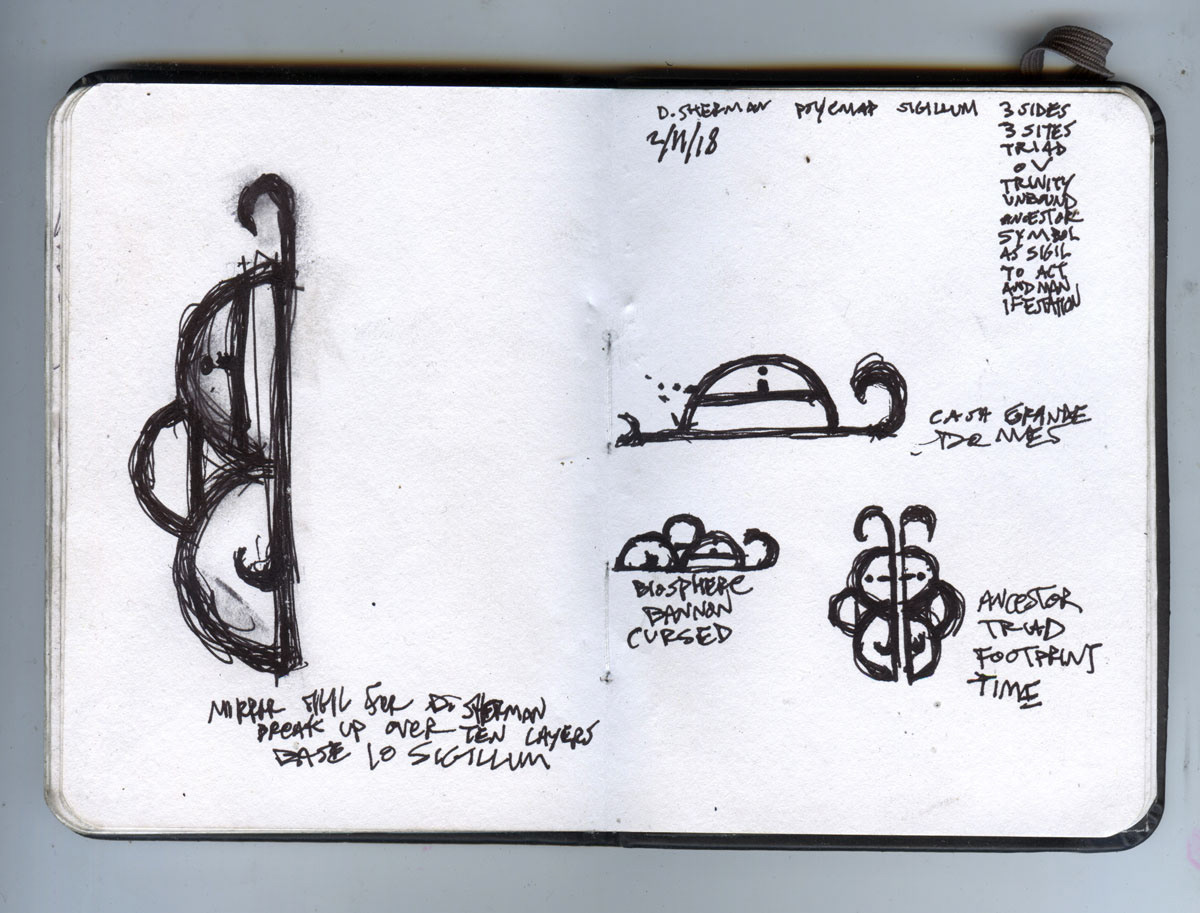 MIRRAR SIGIL FOR D. SHERMAN
BREAK UP OVER TEN LAYERS
BASE 10 SIGILLUM
D. SHERMAN SIGILLUM
3 SIDES
3 SITES
TRIAD
OV
TRINITY
UNBOUND
ANCESTOR
SYMBOL
AS SIGIL
TO ACT
AND MAN
IFESTATION
CASA GRANDE
DOMES
BIOSPHERE
BANNON
CURSED
ANCESTOR
TRIAD
FOOTPRINT
TIME